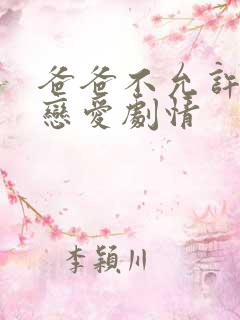 爸爸不允許
戀愛劇情
李穎川